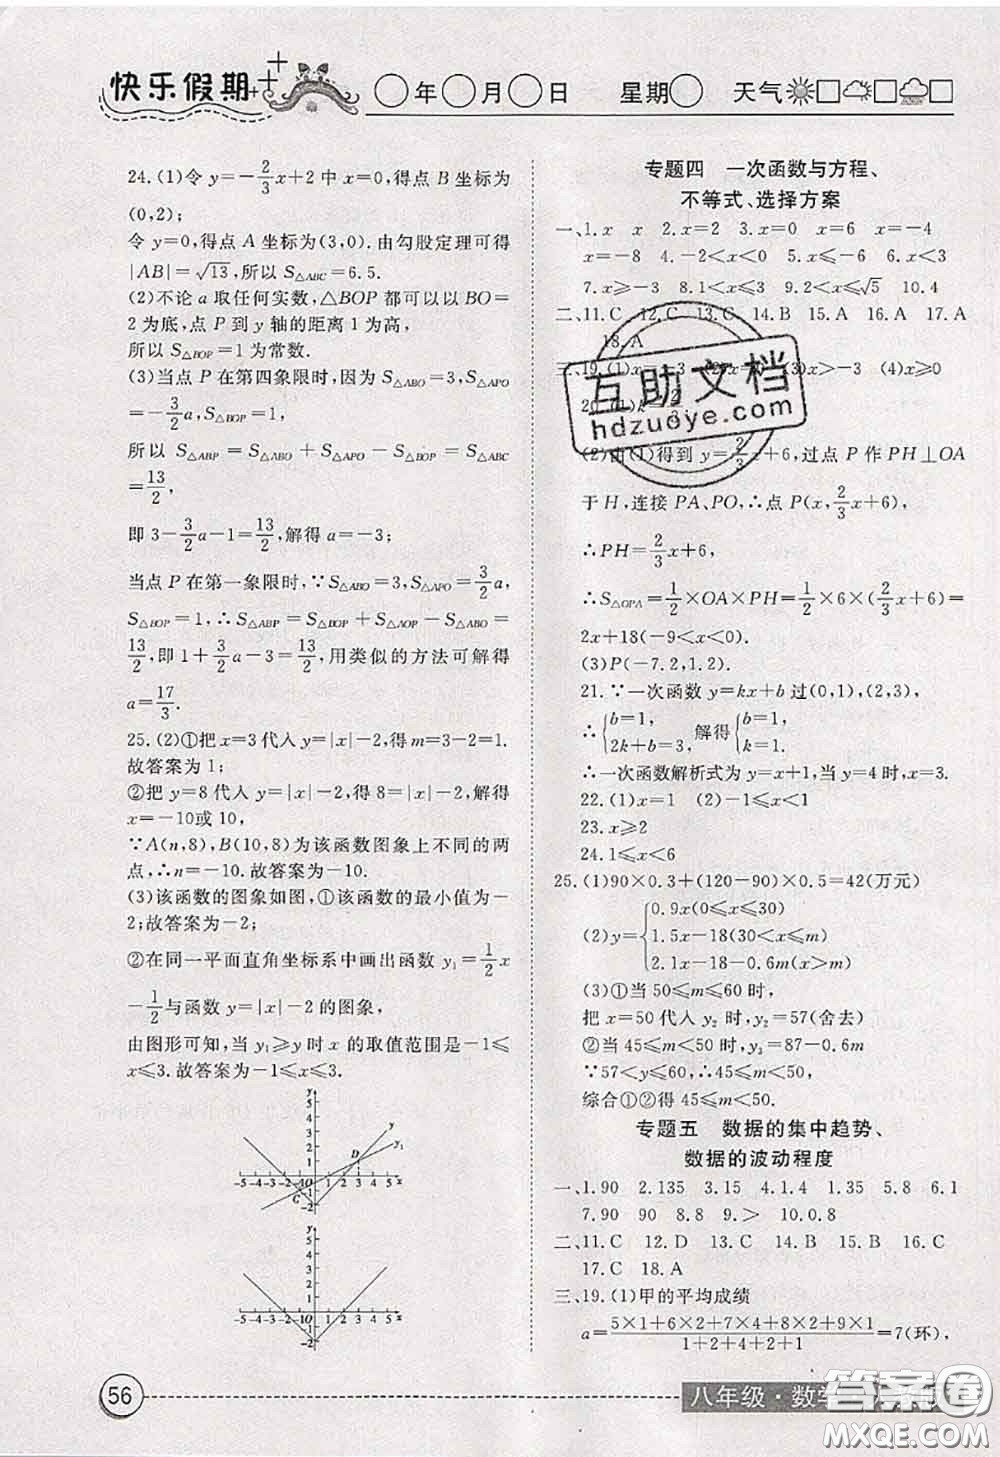 快乐假期
○年○月○日 星期○ 天气☐☐☐
24.(1)令 y=-2/3x+2 中 x=0,得点 B 坐标为
(0,2);
令 y=0,得点 A 坐标为(3,0).由勾股定理可得
|AB|=√13,所以 S△ABC=6.5.
(2)不论 a 取任何实数,△BOP 都可以以 BO=
2为底,点 P 到 y 轴的距离1为高,
所以 S△BOP=1为常数.
(3)当点 P 在第四象限时,因为 S△ABO=3,S△APO
=-3/2a,S△BOP=1,
所以 S△ABP=S△ABO+S△APO-S△BOP=S△ABC
=13/2,
即 3-3/2a-1=13/2,解得 a=-3;
当点 P 在第一象限时,∵S△ABO=3,S△APO=3/2a,
S△BOP=1,∴S△ABP=S△BOP+S△AOP-S△ABO=
13/2,即 1+3/2a-3=13/2,用类似的方法可解得
a=17/3.
25.(2)①把 x=3代入 y=|x|-2,得 m=1.
故答案为 1;
②把 y=8代入 y=|x|-2,得 8=|x|-2,解得
x=-10或10,
∵A(n,8),B(10,8)为该函数图象上不同的两
点,∴n=-10.故答案为-10.
(3)该函数的图象如图,①该函数的最小值为-
2;故答案为-2;
②在同一平面直角坐标系中画出函数 y1=1/2x
-1/2与函数 y=|x|-2的图象,
由图形可知,当 y1≥y 时 x 的取值范围是-1≤
x≤3.故答案为-1≤x≤3.
y
5
4
3
2
1
y1
D
C
-5-4-3-2-1O 1 2 3 4 5 x
-1
-2
y
5
4
3
2
1
-5-4-3-2-1O 1 2 3 4 5 x
-1
-2
专题四 一次函数与方程、
不等式、选择方案
一、1.x x 2.x=2 3.x=0 x=-4
x=-8 4.-2<x<0 5.x≥-2 6.x<3
7.x≥-3 8.1<x<3 9.2<x≤√5 10.4
二、11.C 12.C 13.C 14.B 15.A 16.A 17.A
18.A
三、19.(1)x=-3 (3)x>-3 (4)x≥0
20.(1)k=2/3
(2)由(1)得到 y=2/3x+6,过点 P 作 PH⊥OA
于 H,连接 PA、PO,∴点 P(x,2/3x+6),
∴PH=2/3x+6,
∴S△OPA=1/2×OA×PH=1/2×6×(2/3x+6)=
2x+18(-9<x<0).
(3)P(-7.2,1.2).
21.∵一次函数 y=kx+b 过(0,1),(2,3),
∴{b=1, 2k+b=3, 解得{b=1, k=1.
∴一次函数解析式为 y=x+1,当 y=4时,x=3.
22.(1)x=1 (2)-1≤x<1
23.x≥2
24.1≤x<6
25.(1)90×0.3+(120-90)×0.5=42(万元)
0.9x(0≤x≤30)
(2)y={1.5x-18(30<x≤m)
2.1x-18-0.6m(x>m)
(3)①当 50≤m≤60时,
把 x=50代入 y2 时,y2=57(舍去)
②当 45≤m≤50时,y3=87-0.6m,
∵57<y≤60,∴45≤m<50.
综合①②得 45≤m<50.
专题五 数据的集中趋势、
数据的波动程度
一、1.90 2.135 3.15 4.1.4 1.35 5.8 6.1
7.90 90 8.8 9.> 10.0.8
二、11.C 12.D 13.C 14.D 15.B 16.C
17.C 18.A
三、19.(1)甲的平均成绩
a=(5×1+6×2+7×4+8×2+9×1)/(1+2+4+2+1)=7(环),
互助文档
hdzuoye.com
56
八年级·数学
答案卷
MXQE.COM